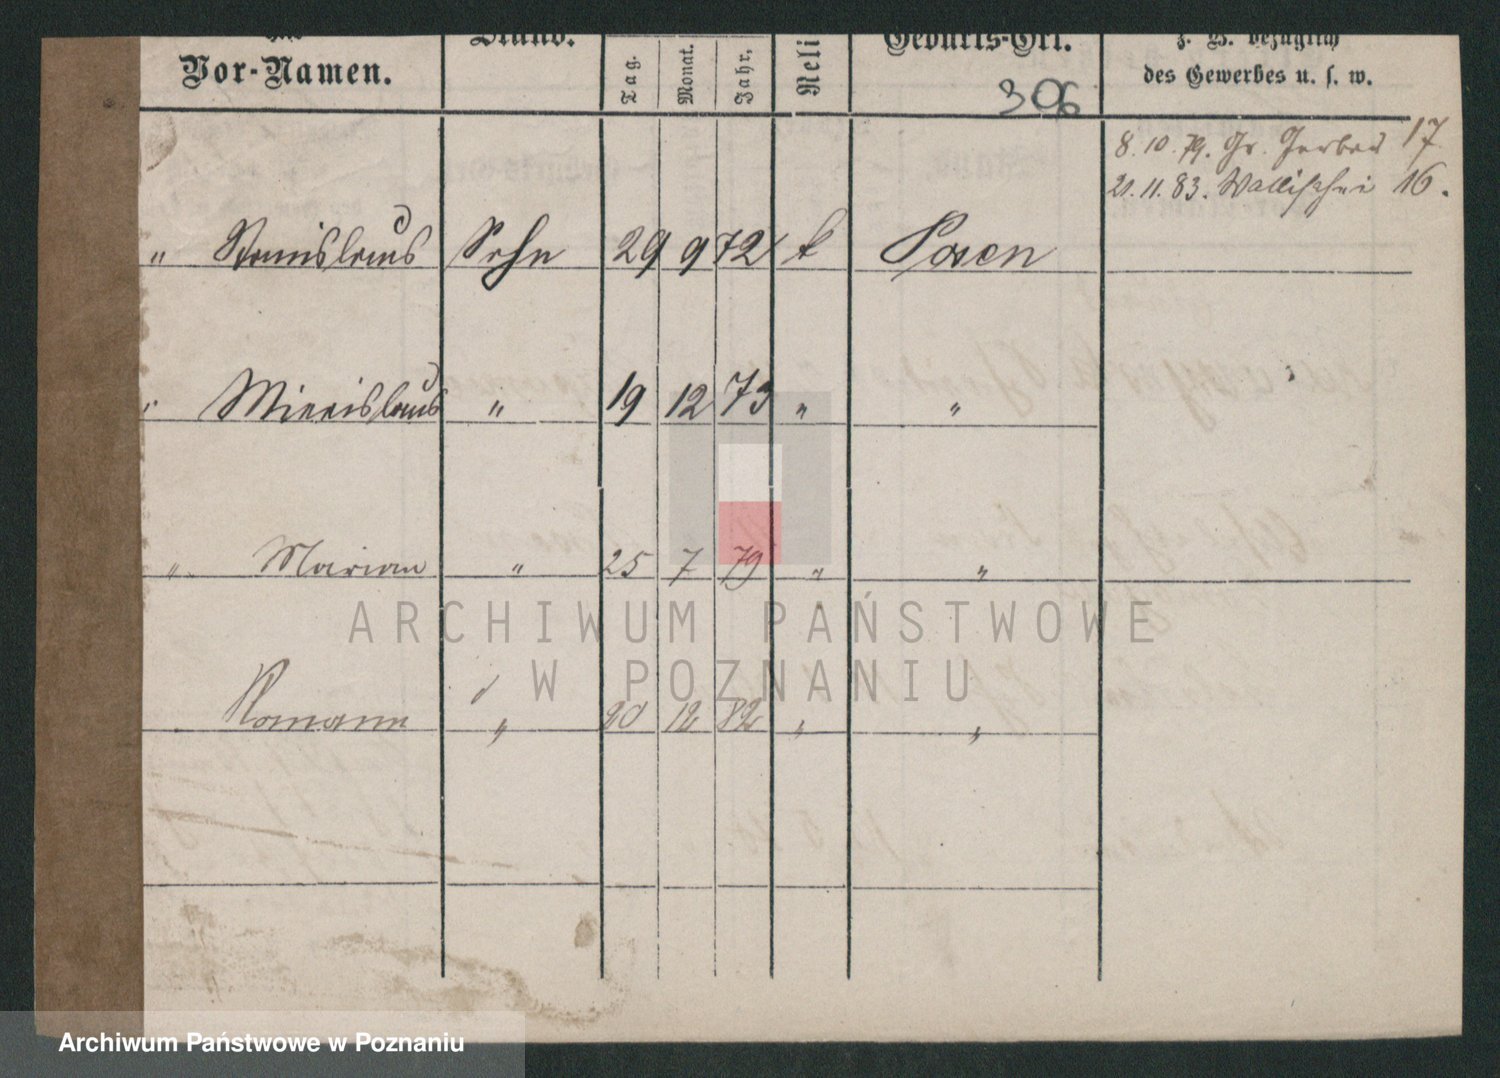 und
Vor-Namen.
Stand.
Tag.
Monat.
Jahr.
Reli
Geburts-Ort.
z. B. bezüglich
des Gewerbes u. s. w.
306
8. 10. 79. Gr. Gerber 17
21. 11. 83. Wallischei 16.
" Stanislaus Sohn 29 9 72 k Posen
" Miecislaus " 19 12 73 " "
" Marian " 25 7 79 " "
Romann " 20 12 82 " "
ARCHIWUM PAŃSTWOWE
W POZNANIU
Archiwum Państwowe w Poznaniu